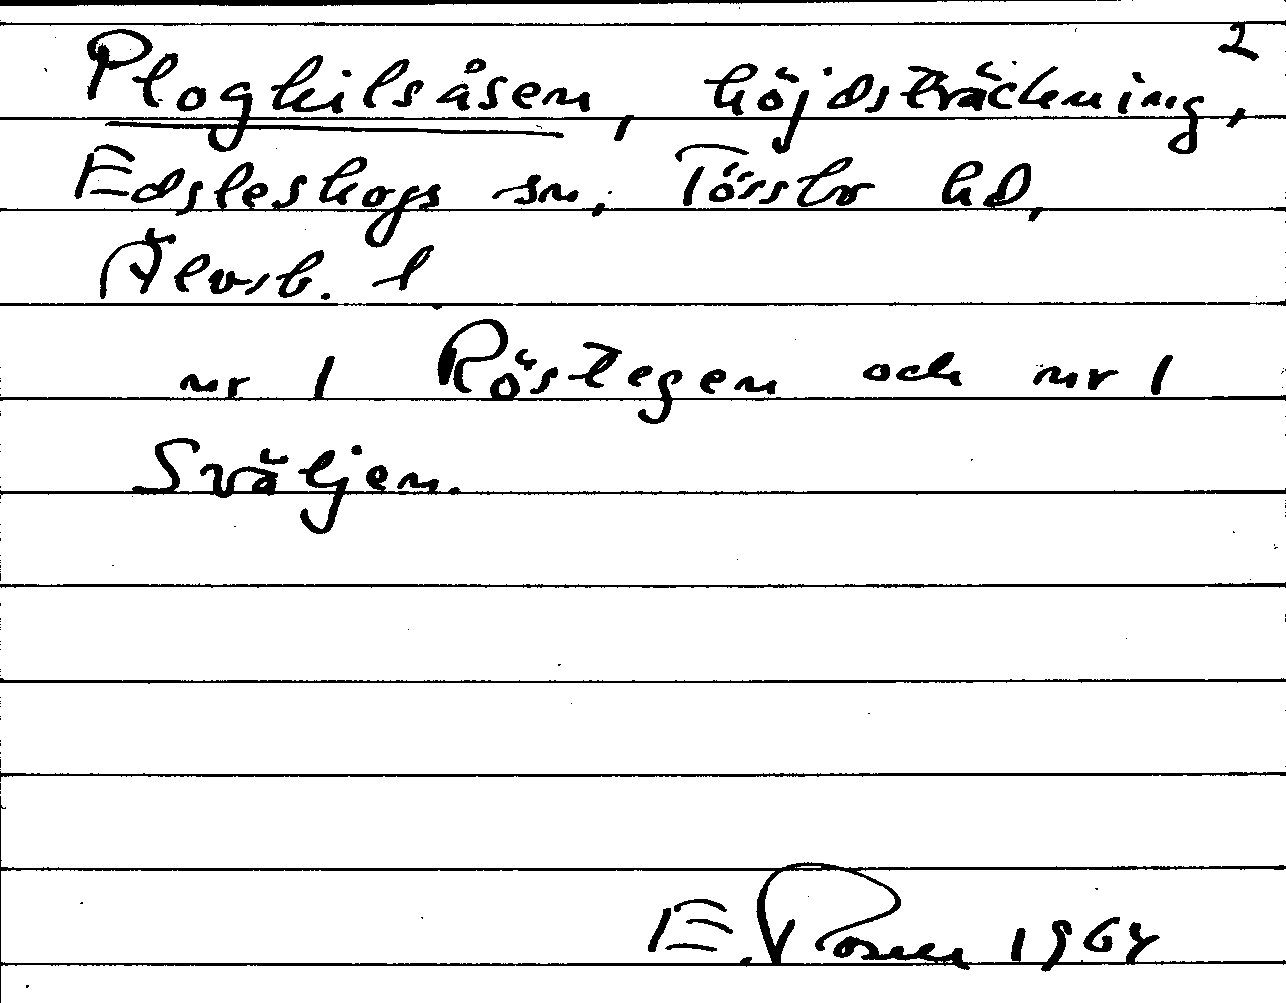 2
Plogkilsåsen, höjdsträckning,
Edsleskogs sn, Tössbo hd,
Älvsb. l
nr 1 Röstegen och nr 1
Sväljen.
E. Rosell 1964